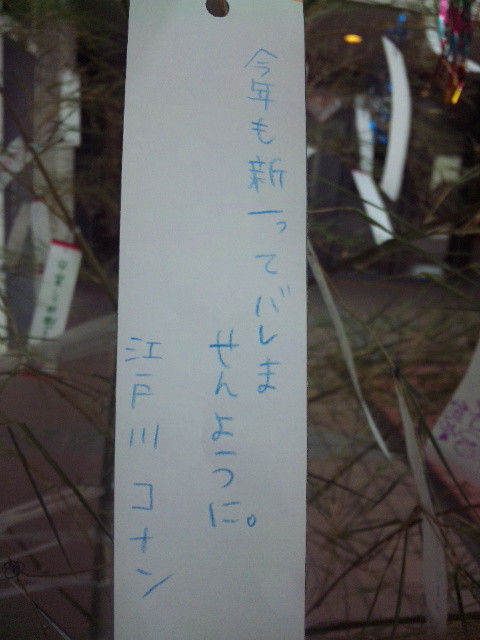 今年も新一ってバレま
せんように。
江戸川コナン